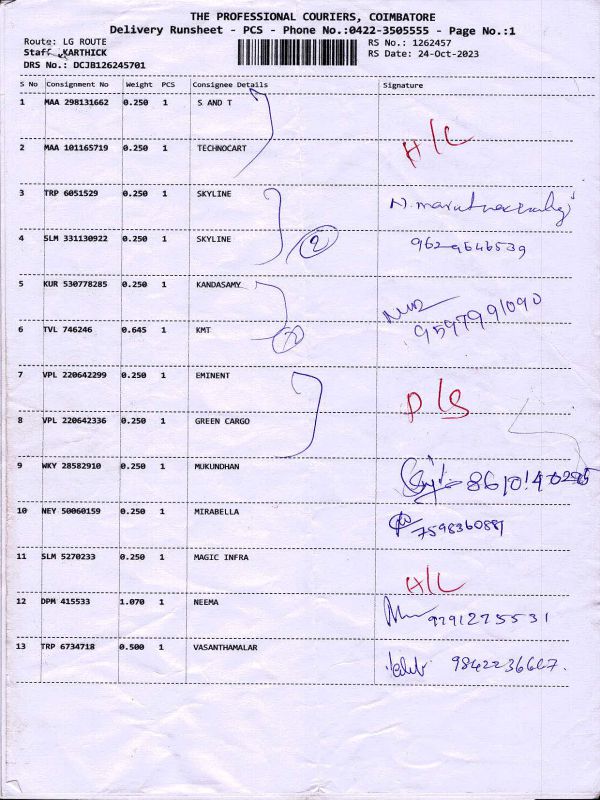 THE PROFESSIONAL COURIERS, COIMBATORE
Delivery Runsheet - PCS - Phone No.:0422-3505555 - Page No.:1
Route: LG ROUTE RS No.: 1262457
Staff KARTHICK RS Date: 24-Oct-2023
DRS No.: DCJB126245701
S No Consignment No Weight PCS Consignee Details Signature
1 MAA 298131662 0.250 1 S AND T
H/L
2 MAA 101165719 0.250 1 TECHNOCART
3 TRP 6051529 0.250 1 SKYLINE
4 SLM 331130922 0.250 1 SKYLINE 2 9629646539
5 KUR 530778285 0.250 1 KANDASAMY
6 TVL 746246 0.645 1 KMT 9597991090
7 VPL 220642299 0.250 1 EMINENT
D/S
8 VPL 220642336 0.250 1 GREEN CARGO
9 WKY 28582910 0.250 1 MUKUNDHAN
10 NEY 50060159 0.250 1 MIRABELLA 7598360881
11 SLM 5270233 0.250 1 MAGIC INFRA H/L
12 DPM 415533 1.070 1 NEEMA 9791275531
13 TRP 6734718 0.500 1 VASANTHAMALAR 9842236667.